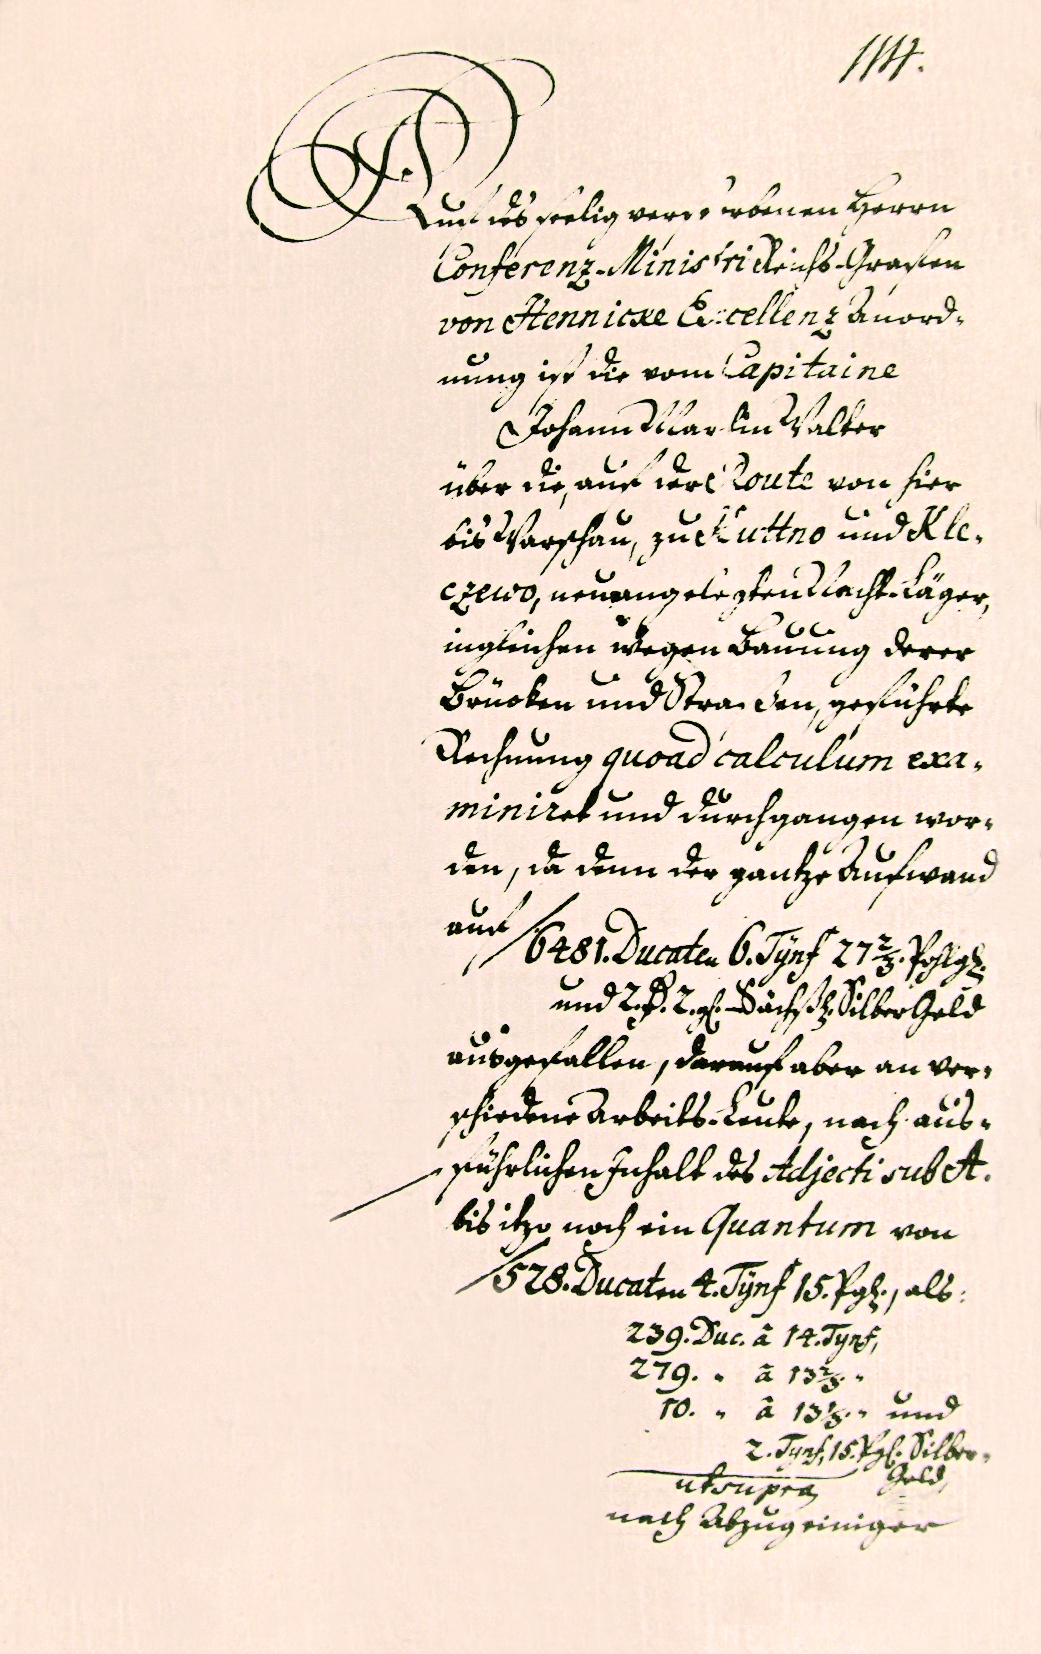 1114.
Auf des seelig verstorbenen Herrn
Conferenz-Ministri Reichs-Grafen
von Hennicke Excellenz Anord-
nung ist die vom Capitaine
Johann Martin Walter
über die, auf der Route von hier
bis Warschau, zu Kuttno und Kle-
czewo, neuangelegten Nacht-Läger,
ingleichen wegen Bauung derer
Brücken und Straßen, geführte
Rechnung quoad calculum exa-
miniret und durchgangen wor-
den, da denn der gantze Aufwand
auf
6481. Ducaten 6. Tÿnf 27 2/3. Pohlgh.
und 2. 2. gl. Sächß. Silber Geld
ausgefallen, darauf aber an ver-
schiedene Arbeits-Leute, nach aus-
führlichen Inhalt des Adjecti sub A.
bis itzo noch ein Quantum von
528. Ducaten 4. Tÿnf 15. Pgh., als:
239. Duc. â 14. Tynf,
279. " â 13 2/3. "
10. " â 13 1/3. " und
2. Tynf, 15. Pgl. Silber-
Geld,
ut supra
nach Abzug einiger